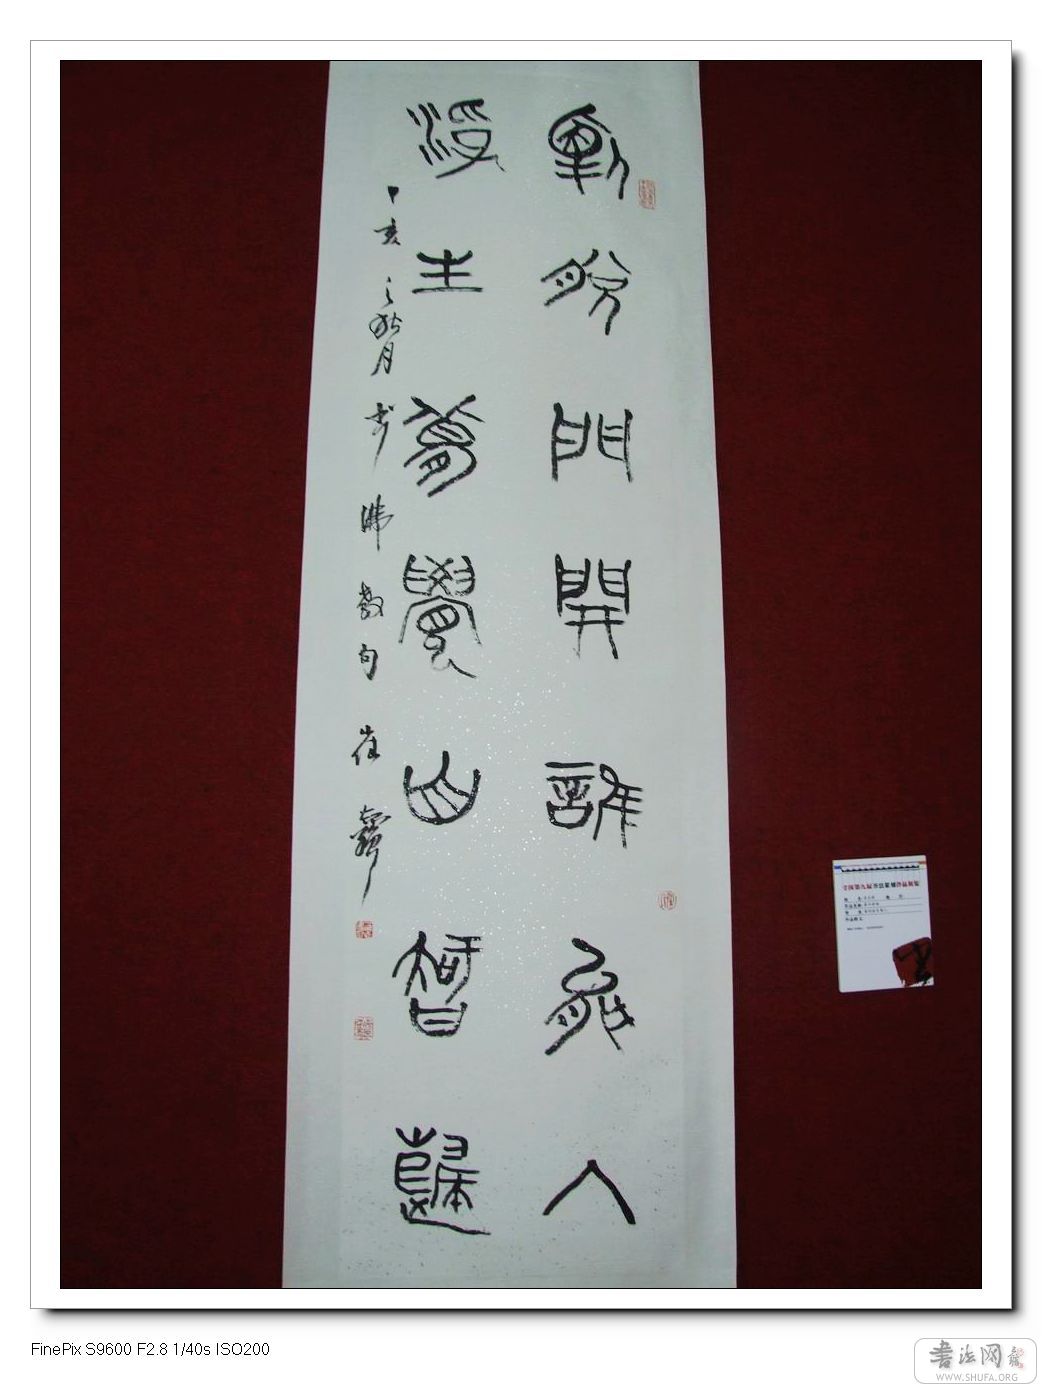 解脫門開誰能入
浮生夢覺自智歸
丁亥之秋月书佛教句 崔
全国第九届书法篆刻作品展览
FinePix S9600 F2.8 1/40s ISO200
書法网
WWW.SHUFA.ORG